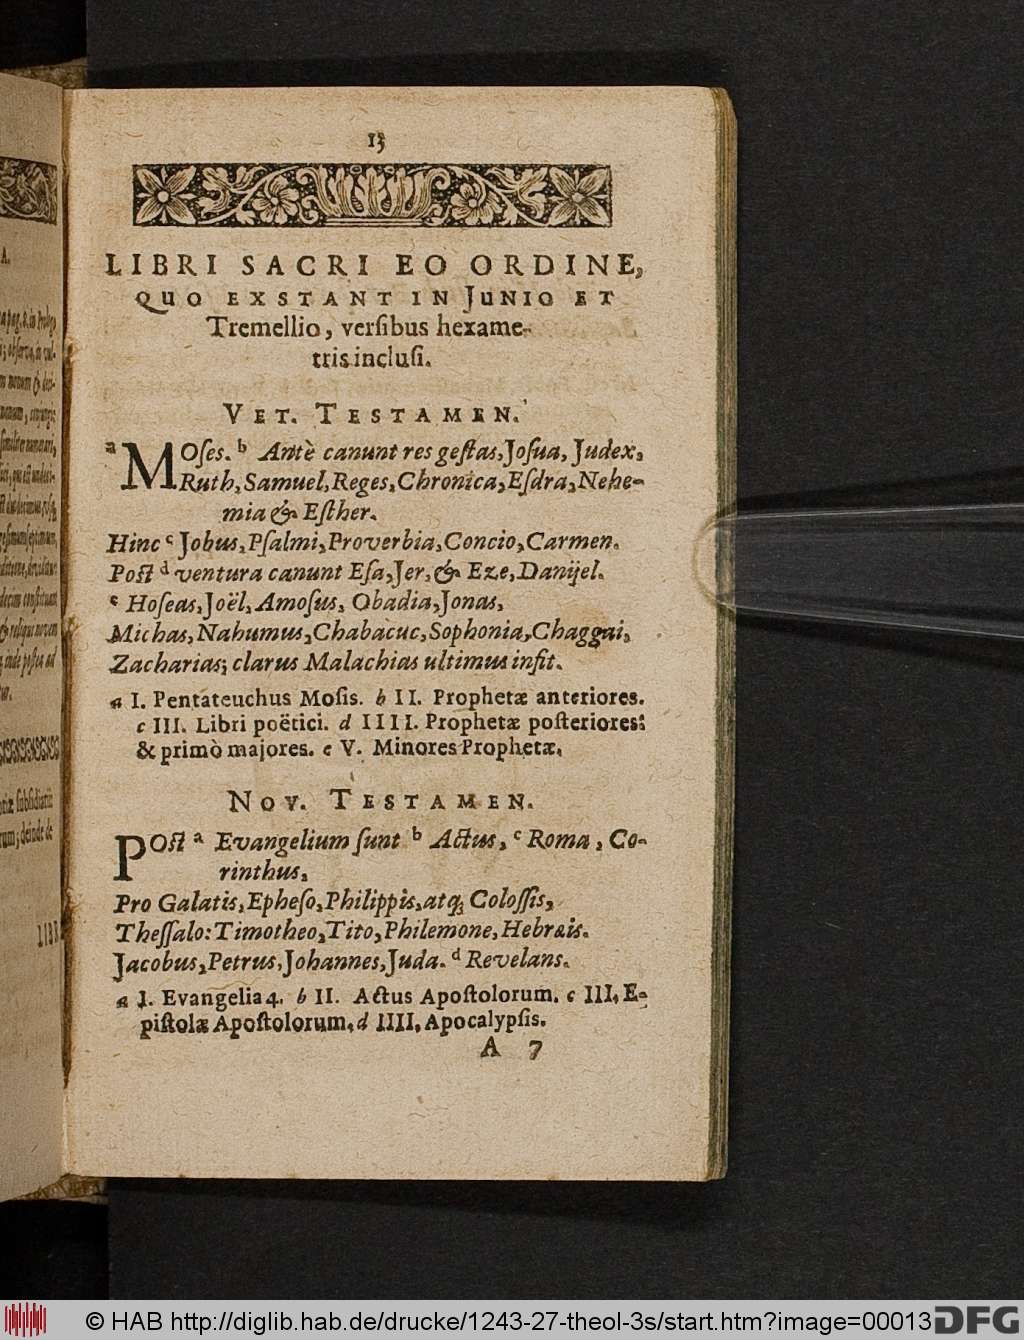 13
LIBRI SACRI EO ORDINE,
QUO EXSTANT IN JUNIO ET
Tremellio, verſibus hexame-
tris incluſi.
VET. TESTAMEN.
a MOſes. b Antè canunt res geſtas, Joſua, Judex,
Ruth, Samuel, Reges, Chronica, Eſdra, Nehe-
mia & Eſther.
Hinc c Jobus, Pſalmi, Proverbia, Concio, Carmen.
Poſt d ventura canunt Eſa, Jer, & Eze, Danijel.
e Hoſeas, Joël, Amoſus, Obadia, Jonas,
Michas, Nahumus, Chabacuc, Sophonia, Chaggai,
Zacharias; clarus Malachias ultimus inſit.
a I. Pentateuchus Moſis. b II. Prophetæ anteriores.
c III. Libri poëtici. d IIII. Prophetæ poſteriores:
& primò majores. e V. Minores Prophetæ.
NOV. TESTAMEN.
POſt a Evangelium ſunt b Actus, c Roma, Co-
rinthus,
Pro Galatis, Epheſo, Philippis, atq; Coloſſis,
Theſſalo: Timotheo, Tito, Philemone, Hebræis.
Jacobus, Petrus, Johannes, Juda. d Revelans.
a I. Evangelia 4. b II. Actus Apoſtolorum. c III. E-
piſtolæ Apoſtolorum, d IIII. Apocalypſis.
A 7
© HAB http://diglib.hab.de/drucke/1243-27-theol-3s/start.htm?image=00013
DFG